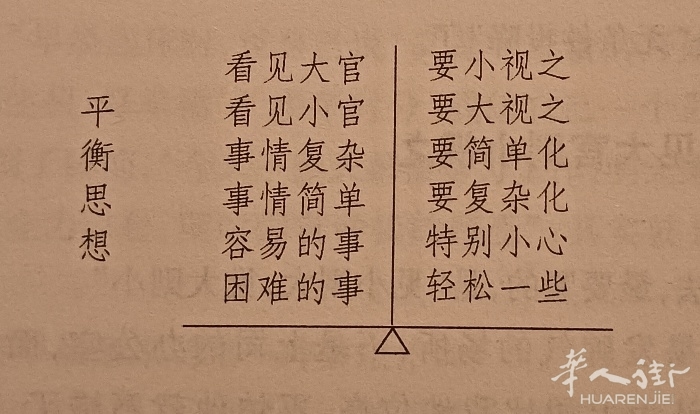 平衡思想
看见大官 要小视之
看见小官 要大视之
事情复杂 要简单化
事情简单 要复杂化
容易的事 特别小心
困难的事 轻松一些
华人街
HUARENJIE.